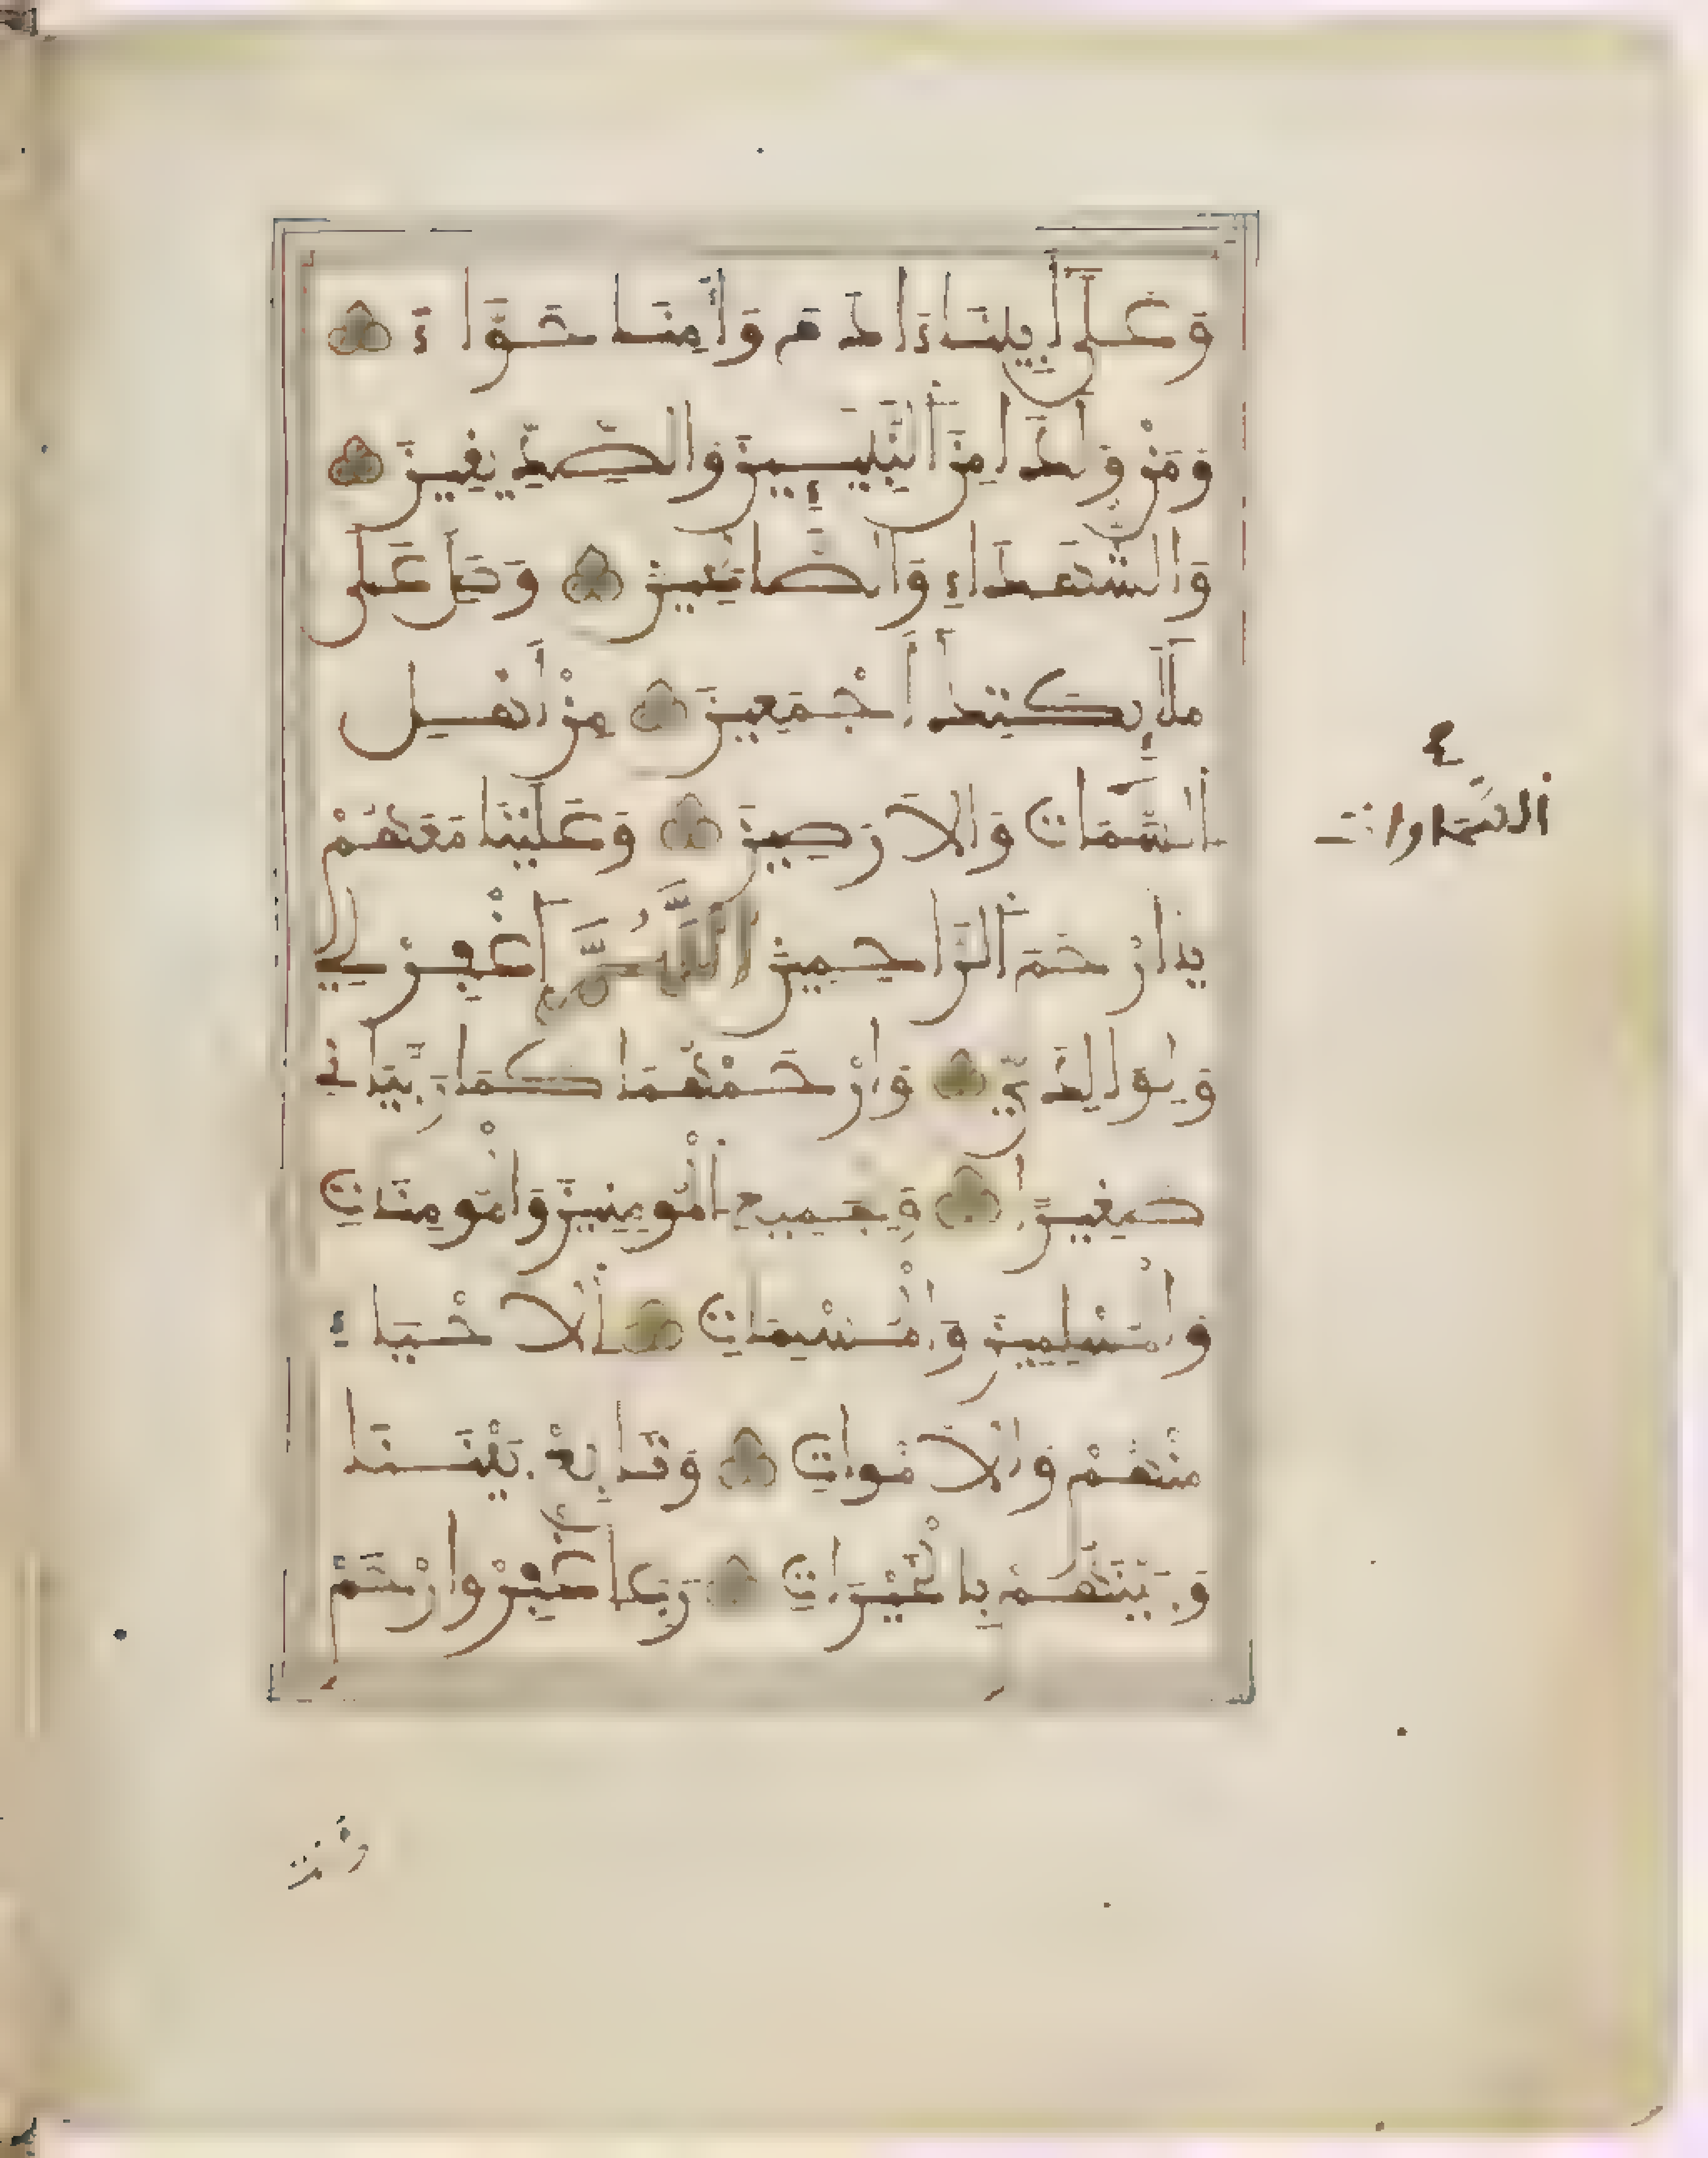 وَعَلَى أَبِينَا ءَادَمَ وَأُمِّنَا حَوَّاءَ
وَمَنْ وَلَدَا مِنَ النَّبِيـِٕينَ وَالصِّدِّيقِينَ
وَالشُّهَدَاءِ وَالصَّالِحِينَ وَصَلِّ عَلَى
مَلَٰٓئِكَتِكَ أَجْمَعِينَ مِنْ أَهْلِ
السَّمَاتِ وَالَارَضِينَ وَعَلَيْنَا مَعَهُمْ
يَا أَرْحَمَ الرَّاحِمِينَ اللَّهُمَّ اغْفِرْ لِي
وَلِوَالِدَيَّ وَارْحَمْهُمَا كَمَا رَبَّيَانِي
صَغِيرًا وَلِجَمِيعِ الْمُومِنِينَ وَالْمُومِنَاتِ
وَالْمُسْلِمِينَ وَالْمُسْلِمَاتِ الَاحْيَاءِ
مِنْهُمْ وَالَامْوَاتِ وَتَابِعْ بَيْنَنَا
وَبَيْنَهُمْ بِالْخَيْرَاتِ رَبِّ اغْفِرْ وَارْحَمْ
السَّمَاوَات
وأنت